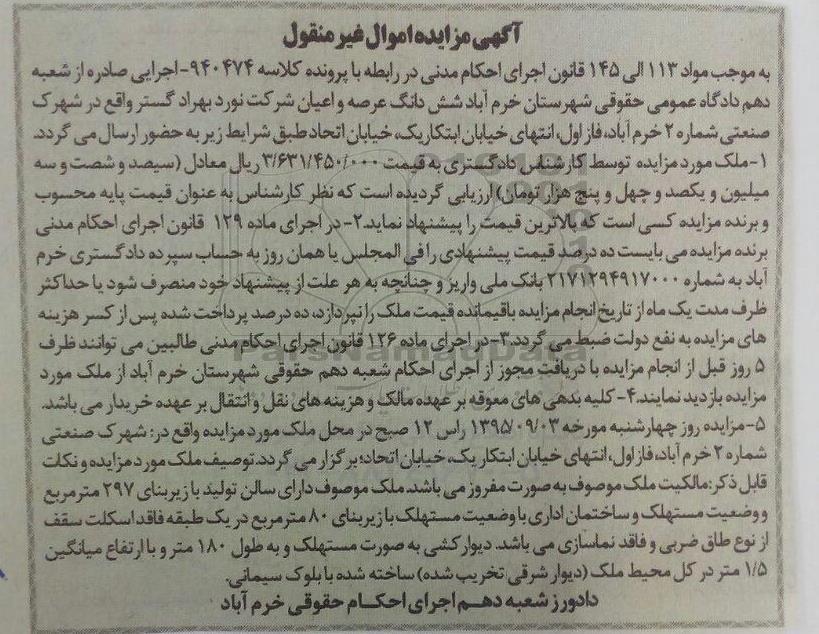 آگهی مزایده اموال غیر منقول
به موجب مواد ۱۱۳ الی ۱۴۵ قانون اجرای احکام مدنی در رابطه با پرونده کلاسه ۹۴۰۴۷۴-اجرایی صادره از شعبه
دهم دادگاه عمومی حقوقی شهرستان خرم آباد شش دانگ عرصه و اعیان شرکت نورد بهراد گستر واقع در شهرک
صنعتی شماره ۲ خرم آباد، فاز اول، انتهای خیابان ابتکاریک، خیابان اتحاد طبق شرایط زیر به حضور ارسال می گردد.
۱-ملک مورد مزایده توسط کارشناس دادگستری به قیمت ۳/۶۳۱/۴۵۰/۰۰۰ ریال معادل (سیصد و شصت و سه
میلیون و یکصد و چهل و پنج هزار تومان) ارزیابی گردیده است که نظر کارشناس به عنوان قیمت پایه محسوب
و برنده مزایده کسی است که بالاترین قیمت را پیشنهاد نماید.۲- در اجرای ماده ۱۲۹ قانون اجرای احکام مدنی
برنده مزایده می بایست ده درصد قیمت پیشنهادی را فی المجلس یا همان روز به حساب سپرده دادگستری خرم
آباد به شماره ۲۱۷۱۲۹۴۹۱۷۰۰۰ بانک ملی واریز و چنانچه به هر علت از پیشنهاد خود منصرف شود یا حداکثر
ظرف مدت یک ماه از تاریخ انجام مزایده باقیمانده قیمت ملک را نپردازد، ده درصد پرداخت شده پس از کسر هزینه
های مزایده به نفع دولت ضبط می گردد.۳-در اجرای ماده ۱۲۶ قانون اجرای احکام مدنی طالبین می توانند ظرف
۵ روز قبل از انجام مزایده با دریافت مجوز از اجرای احکام شعبه دهم حقوقی شهرستان خرم آباد از ملک مورد
مزایده بازدید نمایند.۴- کلیه بدهی های معوقه بر عهده مالک و هزینه های نقل و انتقال بر عهده خریدار می باشد.
۵-مزایده روز چهارشنبه مورخه ۱۳۹۵/۰۹/۰۳ راس ۱۲ صبح در محل ملک مورد مزایده واقع در: شهرک صنعتی
شماره ۲ خرم آباد، فاز اول، انتهای خیابان ابتکار یک، خیابان اتحاد؛ برگزار می گردد. توصیف ملک مورد مزایده و نکات
قابل ذکر:مالکیت ملک موصوف به صورت مفروز می باشد. ملک موصوف دارای سالن تولید با زیربنای ۲۹۷ مترمربع
و وضعیت مستهلک و ساختمان اداری با وضعیت مستهلک با زیربنای ۸۰ مترمربع در یک طبقه فاقد اسکلت سقف
از نوع طاق ضربی و فاقد نماسازی می باشد. دیوارکشی به صورت مستهلک و به طول ۱۸۰ متر و با ارتفاع میانگین
۱/۵ متر در کل محیط ملک (دیوار شرقی تخریب شده) ساخته شده با بلوک سیمانی.
دادورز شعبه دهم اجرای احکام حقوقی خرم آباد
ParsNamadData